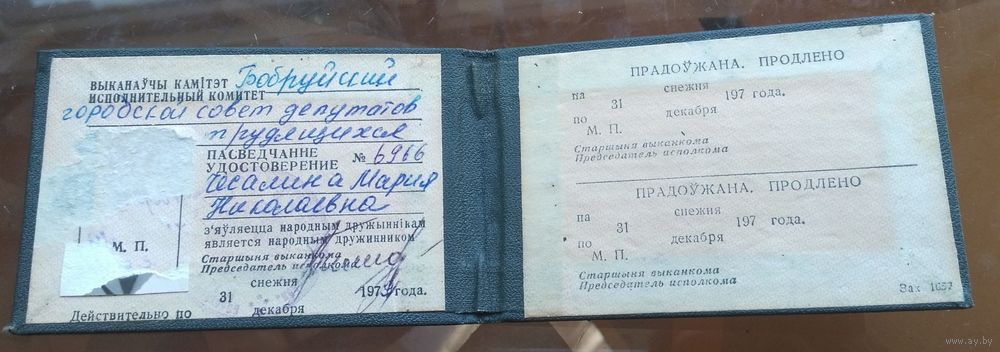 ВЫКАНАЎЧЫ КАМІТЭТ Бобруйский
ИСПОЛНИТЕЛЬНЫЙ КОМИТЕТ
городской совет депутатов
трудящихся
ПАСВЕДЧАННЕ
УДОСТОВЕРЕНИЕ № 6966
Чесалина Мария
Николаевна
з'яўляецца народным дружыннікам
является народным дружинником
М. П.
Старшыня выканкома
Председатель исполкома
снежня
31 197 года.
декабря
Действительно по
ПРАДОЎЖАНА. ПРОДЛЕНО
на снежня
31 197 года.
по декабря
М. П.
Старшыня выканкома
Председатель исполкома
ПРАДОЎЖАНА. ПРОДЛЕНО
на снежня
31 197 года.
по декабря
М. П.
Старшыня выканкома
Председатель исполкома
Зак 1657
www.ay.by